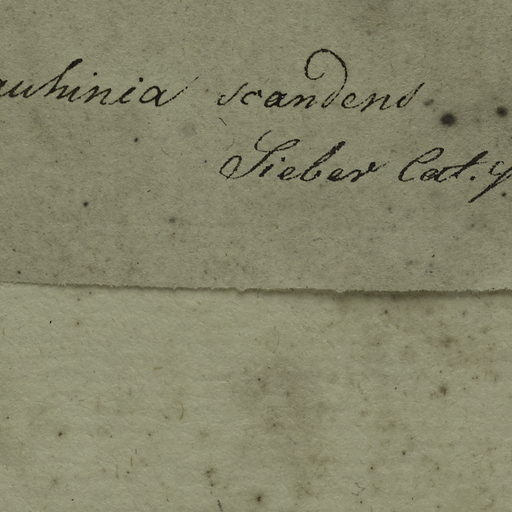 auhinia scandens
Sieber Cat.